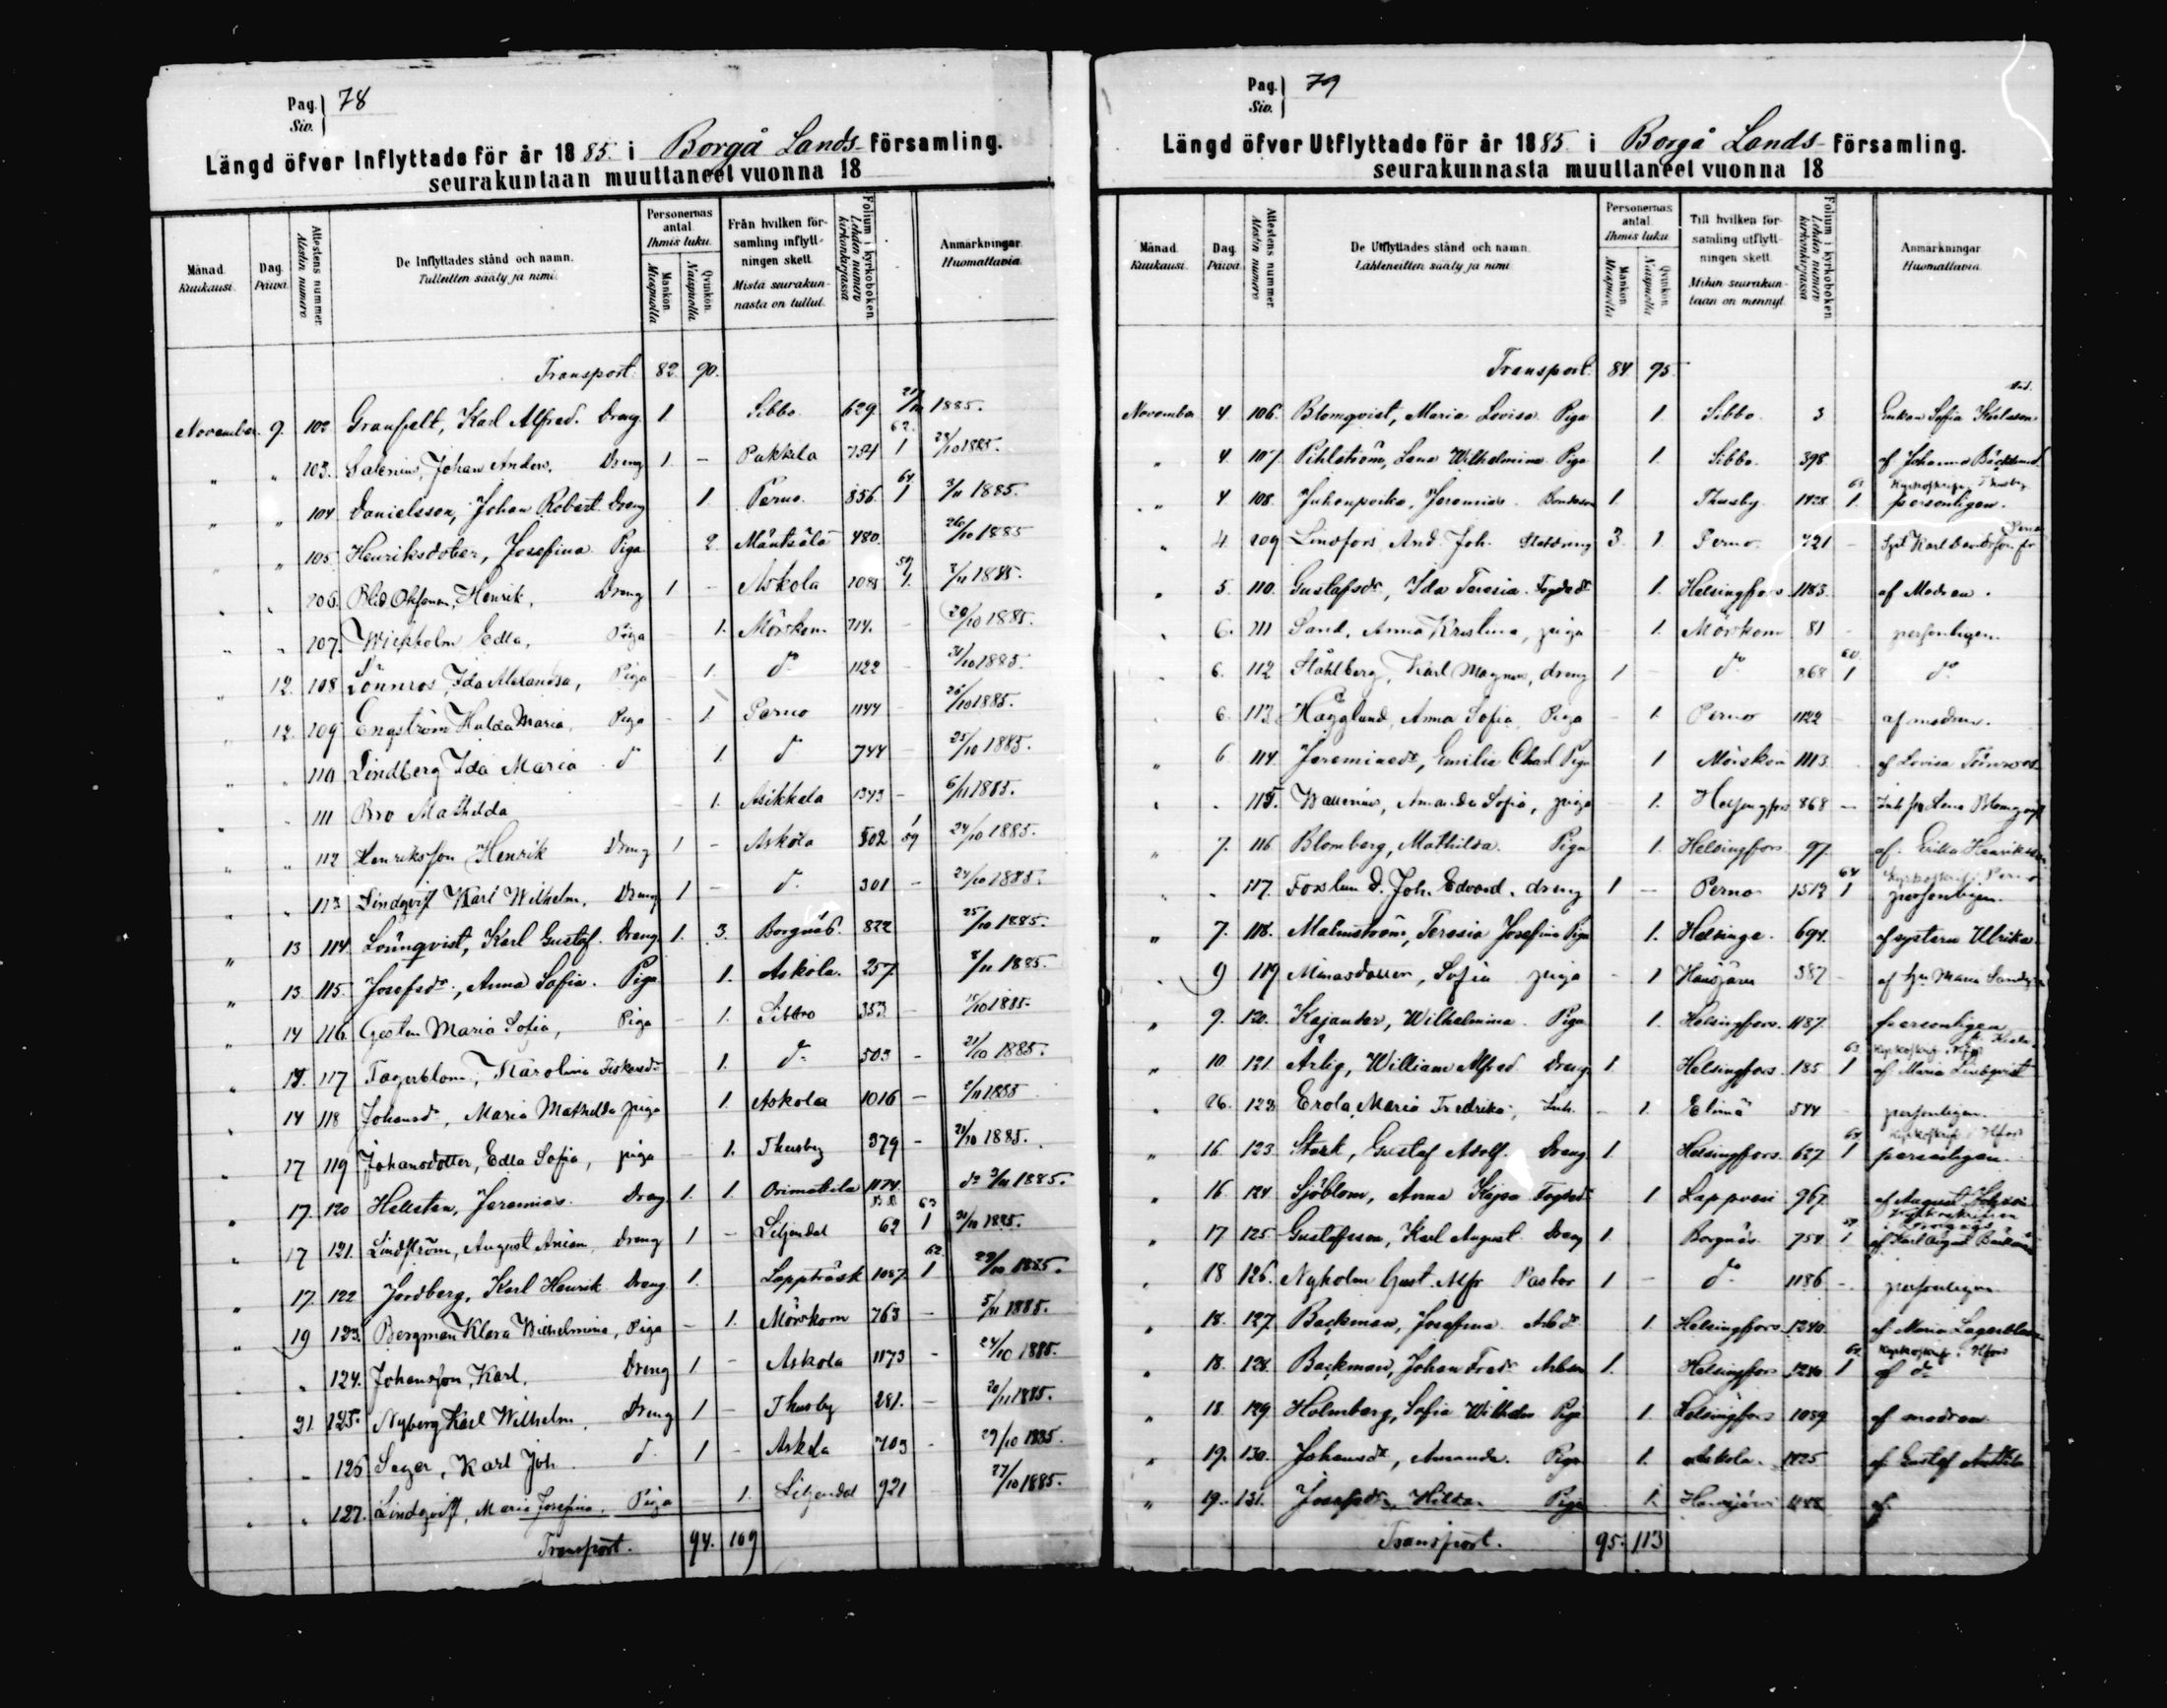 Pag. 78
Siv.
Längd öfver Inflyttade för år 1885. i Borgå Lands- församling.
seurakuntaan muuttaneet vuonna 18
Månad. Kuukausi. Dag. Päivä. Attestens nummer. Alestin numero De Inflyttades stånd och namn. Tulleitten sääty ja nimi. Personernas antal. Ihmis luku. Mankön. Miespuolia Qvinkön. Naispuolia. Från hvilken församling inflyttningen skett. Mistä seurakunnasta on tullut. Folium i kyrkoboken. Lehden numero kirkonkirjassa Anmärkningar. Huomattavia.
Transport. 82. 90.
November. 9. 102 Granfelt, Karl Alfred. Dreng 1 Sibbo 629 1885.
" " 103. Salenius, Johan Anders. Dreng 1. - Pukkila 734 1 28/10 1885.
" " 104 Danielsson, Johan Robert Dreng 1. Perno. 856 64 1 3/11 1885.
" " 105. Henriksdotter, Josefina Piga 2. Mäntsälä 480. 26/10 1885
" " 106. Henrik, Dreng 1 - Askola 1088 59 1. 1885.
" " 107. Wickholm Edla, Piga - 1. Mörskom 714. 20/10 1885.
" 12. 108 Lönnros, Ida Alexandra, Piga - 1. d:o 1122 - 1885.
" 12. 109 Engström Hulda Maria, Piga - 1 Perno 1144 - 26/10 1885.
" " 110 Lindberg Ida Maria d:o 1. d:o 744 - 25/10 1885.
" " 111 Bro Mathilda - 1. Asikkala 1343 - 6/11 1885.
" " 112 Henriksson Henrik Dreng 1 - Askola 502 1 59 24/10 1885.
" " 113 Lindqvist Karl Wilhelm. Dreng 1 - d:o 301 - 24/10 1885.
" 13 114 Lönnqvist, Karl Gustaf. Dreng 1. 3. Borgnäs. 822 25/10 1885.
" 13. 115. Josefsdr., Anna Sofia. Piga 1. Askola. 257 8/11 1885.
" 14 116. Maria Sofia, Piga - 1. Sibbo 353 - 15/10 1885.
" 14. 117 Fagerblom, Karolina Fiskaredr 1. d:o 503 - 21/10 1885.
" 14 118 Johansdr, Maria Mathilda piga 1. Askola 1016 - 1885
" 17 119 Johansdotter, Edla Sofia, piga - 1. Thusby 379 - 1885.
" 17. 120 Hellsten, Jeremias. Dreng 1. 1. Orimattila 1174. 1885.
" 17 121. Lindström, August Anian, Dreng 1 - Liljendal 62 63 1 1885.
" 17. 122 Jordberg, Karl Henrik Dreng 1. Lappträsk 1087. 62 1 1885.
" 19 123. Bergman Klara Wilhelmina, Piga - 1. Mörskom 763 - 5/11 1885.
" " 124. Johansson, Karl. Dreng 1 - Askola 1173 - 24/10 1885.
" 21. 125. Nyberg Karl Wilhelm. Dreng 1 - Thusby 281. - 20/11 1885.
" " 126 Seger, Karl Joh. d:o 1 - Askola 703 - 29/10 1885.
" " 127. Lindqvist, Maria Josefina. Piga - 1. Liljendal 921 27/10 1885.
Transport. 94. 109
Pag. 79
Siv.
Längd öfver Utflyttade för år 1885 i Borgå Lands- församling.
seurakunnasta muuttaneet vuonna 18
Månad. Kuukausi. Dag. Päivä. Attestens nummer. Alestin numero De Utflyttades stånd och namn. Lähteneitten sääty ja nimi. Personernas antal. Ihmis luku. Mankön. Miespuolia Qvinkön. Naispuolia Till hvilken församling utflyttningen skett. Mihin seurakuntaan on mennyt. Folium i kyrkoboken. Lehden numero kirkonkirjassa Anmärkningar. Huomattavia.
Transport. 84 95.
November 4 106. Blomqvist, Maria Lovisa Piga 1. Sibbo. 3 Enkan Sofia Karlsson
" 4. 107 Pihlström, Lena Wilhelmina Piga 1. Sibbo. 398 af Johanna Bäcklund
" 4 108. Juhanpoika, Jeremias. Bondeson 1. Thusby. 1428. 63 1. Kyrkoskrifn. Thusby personligen.
" 4. 109 Lindfors, And. Joh. 3. 1. Perno. 721 -
" 5. 110. Gustafsdr, Ida Teresia. 1. Helsingfors. 1183. af Modren.
" 6. 111 Sand, Anna Kristina, piga - 1. Mörskom 81 - personligen.
" 6. 112 Ståhlberg, Karl Magnus, dreng 1 - d:o 868 60 1 d:o
" 6. 113. Hägglund, Anna Sofia Piga - 1. Perno 1122 - af modren.
" 6 114. Jeremiasdr, Emilia Charl. Piga 1 Mörskom 1113. af Lovisa
" " 115. Wallenius, Amanda Sofia, piga - 1. Helsingfors 868 - Lena Blomqvist
" 7. 116 Blomberg, Mathilda. Piga 1. Helsingfors 97. af Erika Henriksson
" " 117. Joh. Edvard, dreng 1 - Perno 1312 64 1 Kyrkoskrif. Perno personligen.
" 7. 118. Malmström, Teresia Josefina Piga 1. Helsinge. 694. af systern Ulrika.
" 9 119 Minasdotter, Sofia piga - 1 Hausjärvi 387 - af Maria
" 9. 120. Kajander, Wilhelmina. Piga 1. Helsingfors. 1187. personligen
" 10. 121. Ärlig, William Alfred Dreng 1. Helsingfors. 185 63 1 af Maria Lindqvist
" 16. 122 Erola, Maria Fredrika, Inh. - 1. Elimä 544 - personligen.
" 16. 123. Stark, Gustaf Adolf. Dreng 1. Helsingfors. 627 64 1 Kyrkoskrif. Hfors personligen.
" 16 124 Sjöblom, Anna Kajsa 1 Lappvesi 967. af August
" 17 125 Gustafsson, Karl August Dreng 1. Borgnäs. 754 59. 1 af Karl August
" 18 126. Nyholm Gust. Alfr. Pastor 1 - d:o 1186 - personligen
" 18. 127. Backman, Josefina Arb.dr. 1. Helsingfors. 1240. af Maria Lagerblom
" 18. 128. Backman, Johan Fredr. 1. Helsingfors 1240 1 Kyrkoskrif. Hfors af d:o
" 18. 129. Holmberg, Sofia Wilhelm. Piga 1. Helsingfors 1089 af modren.
" 19. 130. Johansdr, Amanda. Piga 1. Askola. 1125 af Gustaf Anttila
" 19. 131. Josefsdr, Hilda. Piga 1. Hausjärvi af
Transport. 95. 113